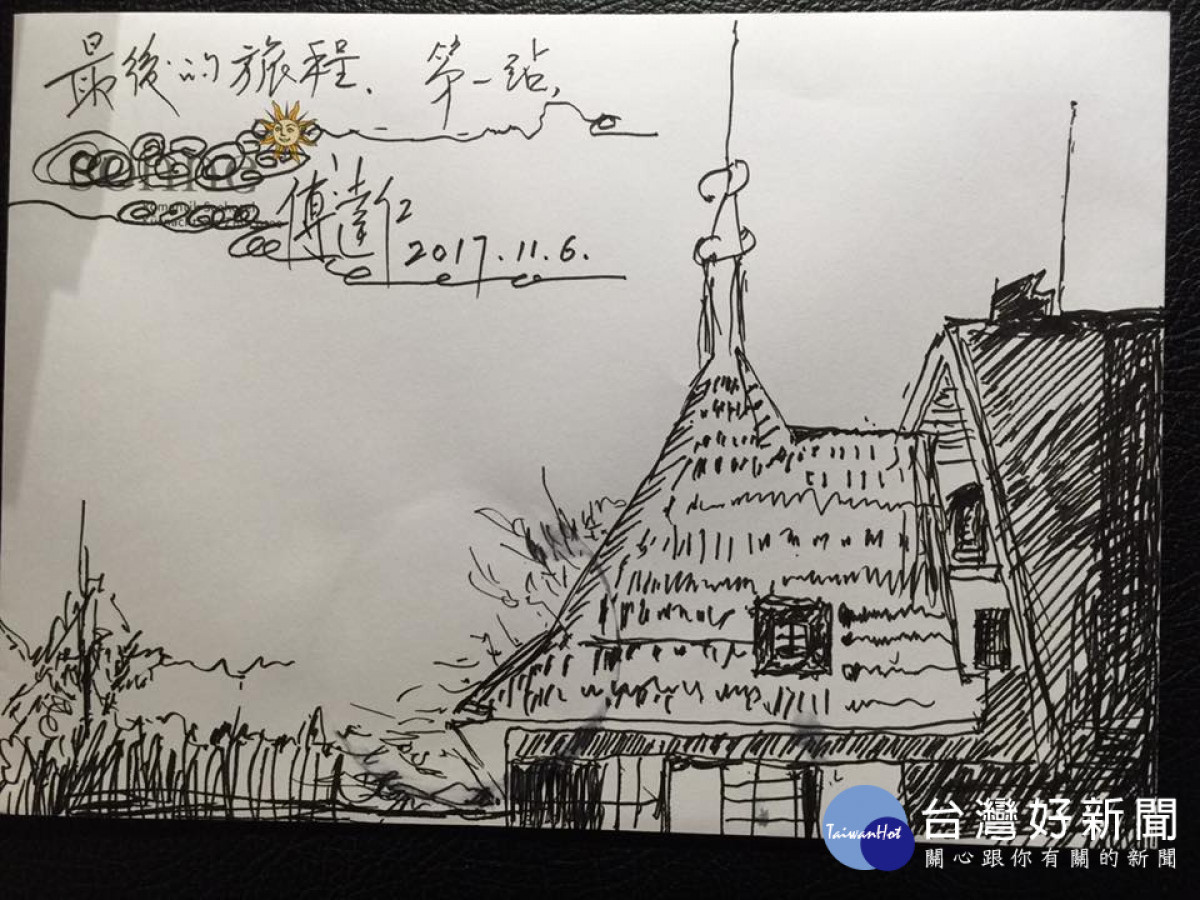 最後的旅程. 第一站,
傅達仁
2017.11.6.
TaiwanHot
台灣好新聞
關心跟你有關的新聞